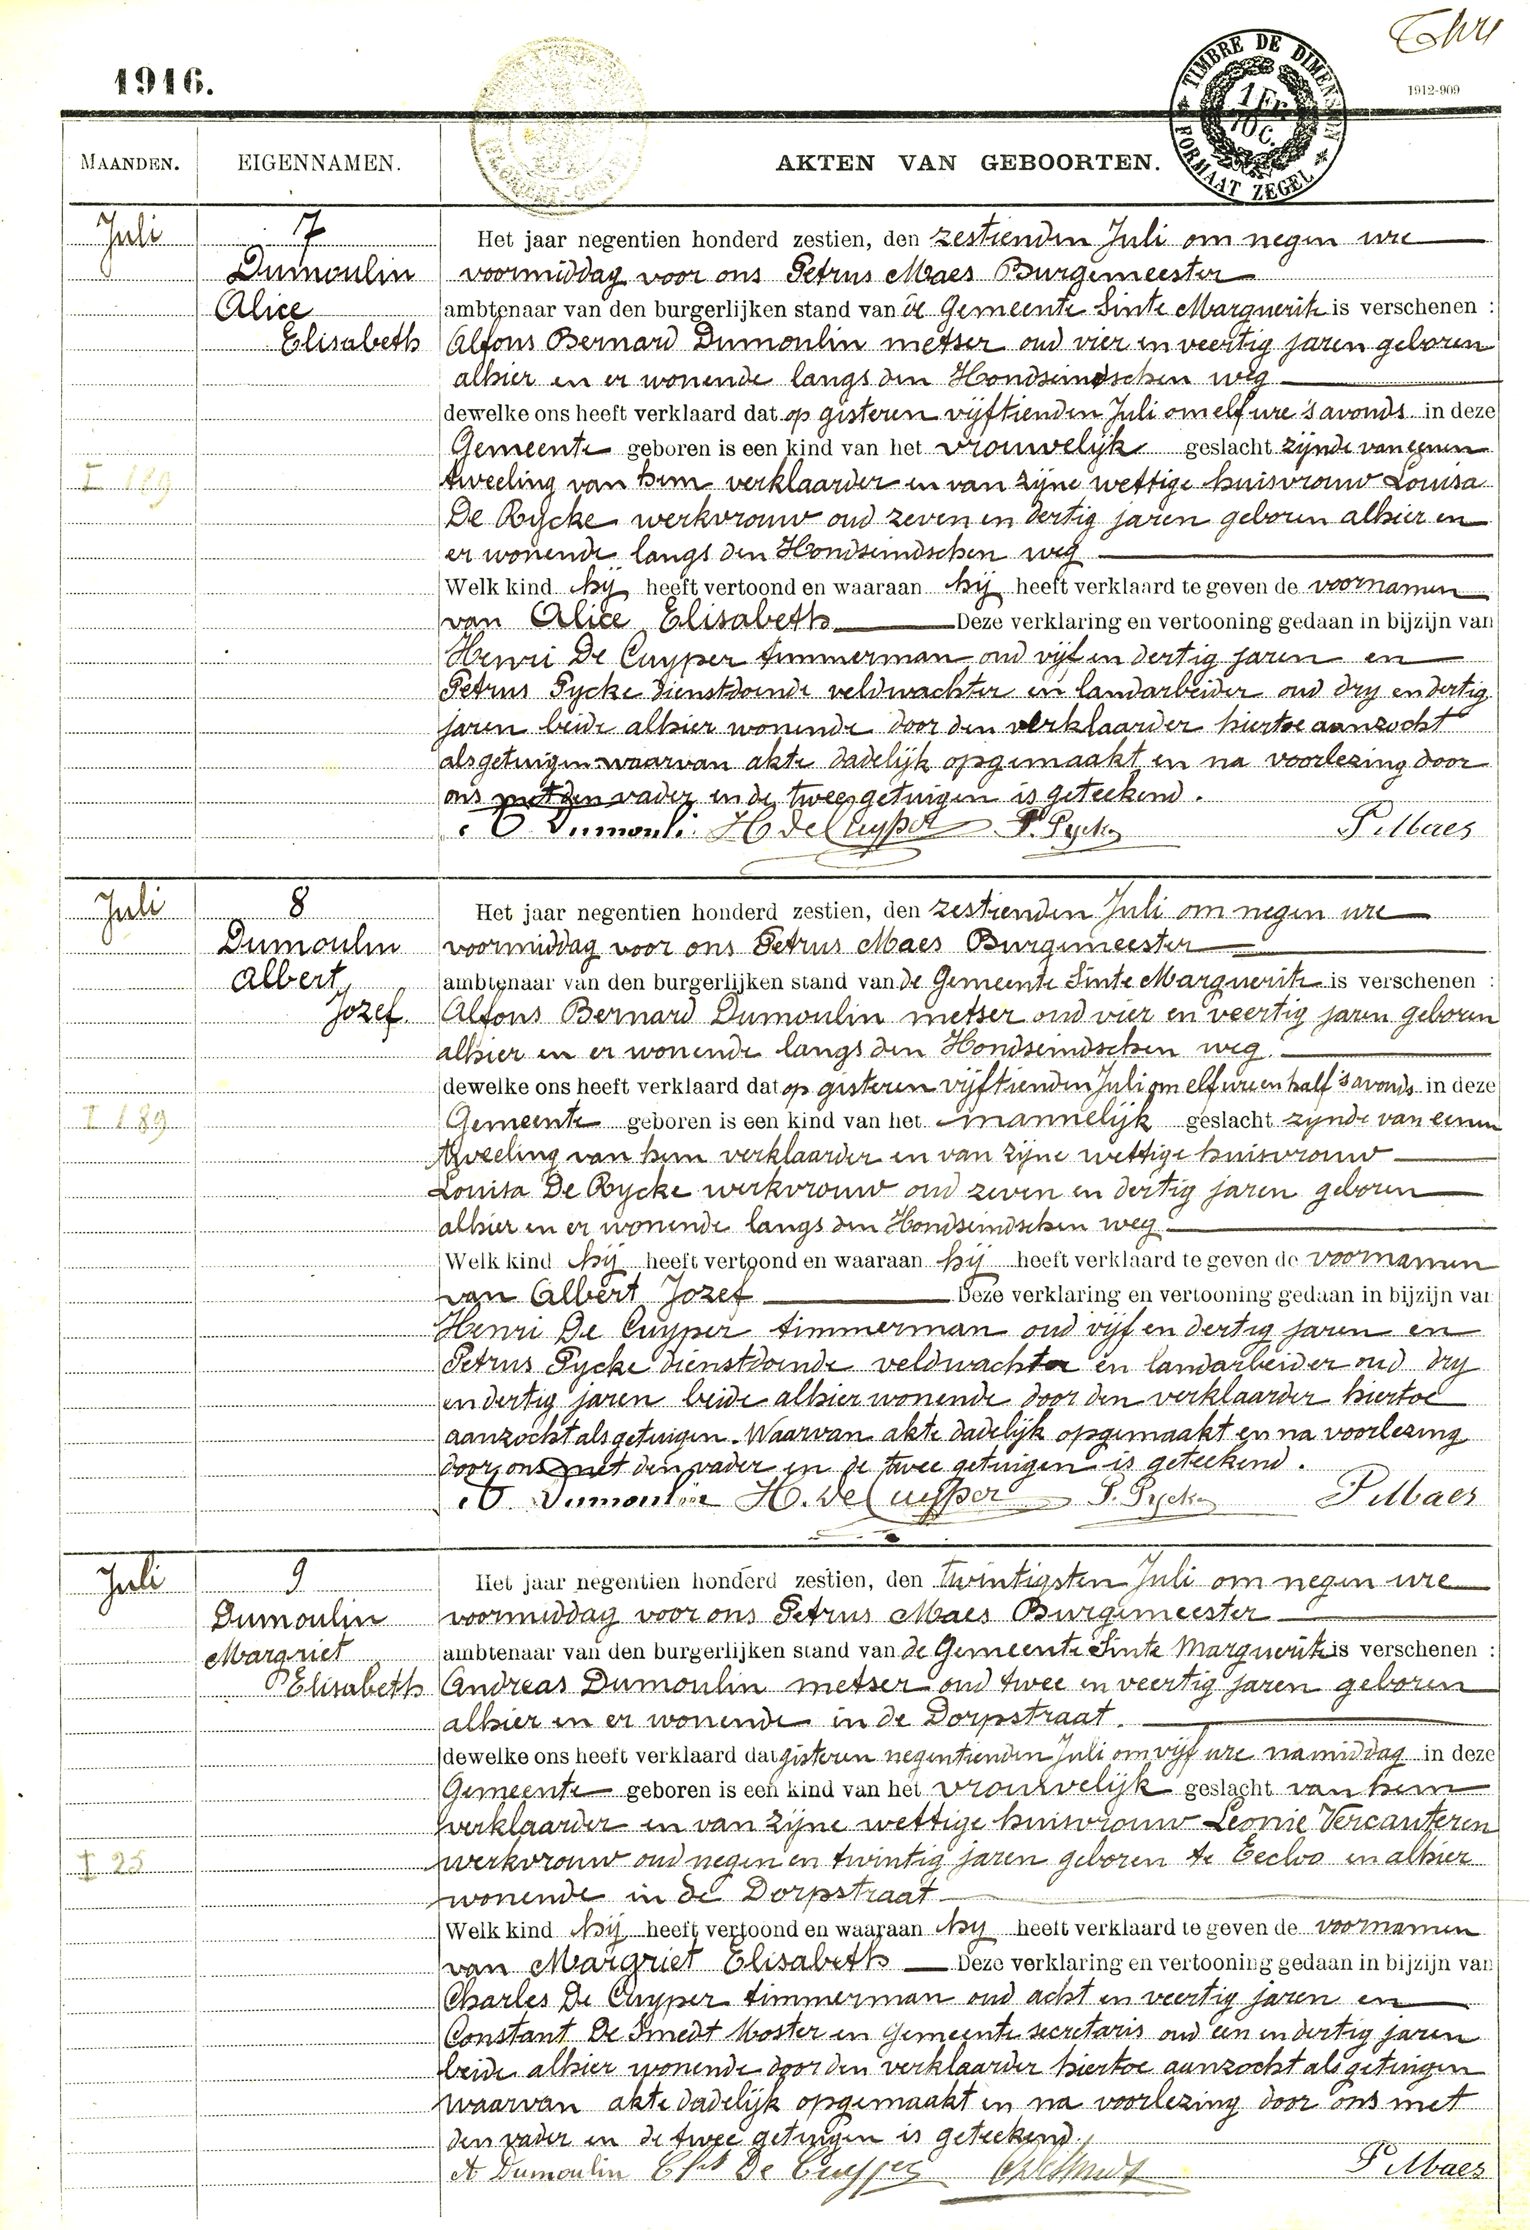 1916.
TIMBRE DE DIMENSION
1 Fr.
10 C.
FORMAAT ZEGEL
1912-909
MAANDEN.
EIGENNAMEN.
AKTEN VAN GEBOORTEN.
Juli
7
Dumoulin
Alice
Elisabeth
I 189
Het jaar negentien honderd zestien, den zestienden Juli om negen ure
voormiddag voor ons Petrus Maes Burgemeester
ambtenaar van den burgerlijken stand van de Gemeente Sinte Marguerite is verschenen :
Alfons Bernard Dumoulin metser oud vier en veertig jaren geboren
alhier en er wonende langs den Hondseindschen weg
dewelke ons heeft verklaard dat op gisteren vijftienden Juli om elf ure 's avonds in deze
Gemeente geboren is een kind van het vrouwelijk geslacht zijnde van eenen
tweeling van hem verklaarder en van zijne wettige huisvrouw Louisa
De Rycke werkvrouw oud zeven en dertig jaren geboren alhier en
er wonende langs den Hondseindschen weg
Welk kind hij heeft vertoond en waaraan hij heeft verklaard te geven de voornamen
van Alice Elisabeth Deze verklaring en vertooning gedaan in bijzijn van
Henri De Cuyper timmerman oud vijf en dertig jaren en
Petrus Pycke dienstdoende veldwachter en landarbeider oud dry en dertig
jaren beide alhier wonende door den verklaarder hiertoe aanzocht
als getuigen waarvan akte dadelijk opgemaakt en na voorlezing door
ons met den vader en de twee getuigen is geteekend.
Dumouli H. De Cuyper P. Pycke P. Maes
Juli
8
Dumoulin
Albert
Jozef.
I 189
Het jaar negentien honderd zestien, den zestienden Juli om negen ure
voormiddag voor ons Petrus Maes Burgemeester
ambtenaar van den burgerlijken stand van de Gemeente Sinte Marguerite is verschenen :
Alfons Bernard Dumoulin metser oud vier en veertig jaren geboren
alhier en er wonende langs den Hondseindschen weg.
dewelke ons heeft verklaard dat op gisteren vijftienden Juli om elf ure en half 's avonds in deze
Gemeente geboren is een kind van het mannelijk geslacht zijnde van eenen
tweeling van hem verklaarder en van zijne wettige huisvrouw
Louisa De Rycke werkvrouw oud zeven en dertig jaren geboren
alhier en er wonende langs den Hondseindschen weg
Welk kind hij heeft vertoond en waaraan hij heeft verklaard te geven de voornamen
van Albert Jozef Deze verklaring en vertooning gedaan in bijzijn van
Henri De Cuyper timmerman oud vijf en dertig jaren en
Petrus Pycke dienstdoende veldwachter en landarbeider oud dry
en dertig jaren beide alhier wonende door den verklaarder hiertoe
aanzocht als getuigen. Waarvan akte dadelijk opgemaakt en na voorlezing
door ons met den vader en de twee getuigen is geteekend.
Dumoulin H. De Cuyper P. Pycke P. Maes
Juli
9
Dumoulin
Margriet
Elisabeth
I 25
Het jaar negentien honderd zestien, den twintigsten Juli om negen ure
voormiddag voor ons Petrus Maes Burgemeester
ambtenaar van den burgerlijken stand van de Gemeente Sinte Marguerite is verschenen :
Andreas Dumoulin metser oud twee en veertig jaren geboren
alhier en er wonende in de Dorpstraat.
dewelke ons heeft verklaard dat gisteren negentienden Juli om vijf ure namiddag in deze
Gemeente geboren is een kind van het vrouwelijk geslacht van hem
verklaarder en van zijne wettige huisvrouw Leonie Vercauteren
werkvrouw oud negen en twintig jaren geboren te Eecloo en alhier
wonende in de Dorpstraat
Welk kind hij heeft vertoond en waaraan hy heeft verklaard te geven de voornamen
van Margriet Elisabeth Deze verklaring en vertooning gedaan in bijzijn van
Charles De Cuyper timmerman oud acht en veertig jaren en
Constant De Smedt koster en gemeente secretaris oud een en dertig jaren
beide alhier wonende door den verklaarder hiertoe aanzocht als getuigen
waarvan akte dadelijk opgemaakt en na voorlezing door ons met
den vader en de twee getuigen is geteekend.
A Dumoulin Chs De Cuyper P. Maes